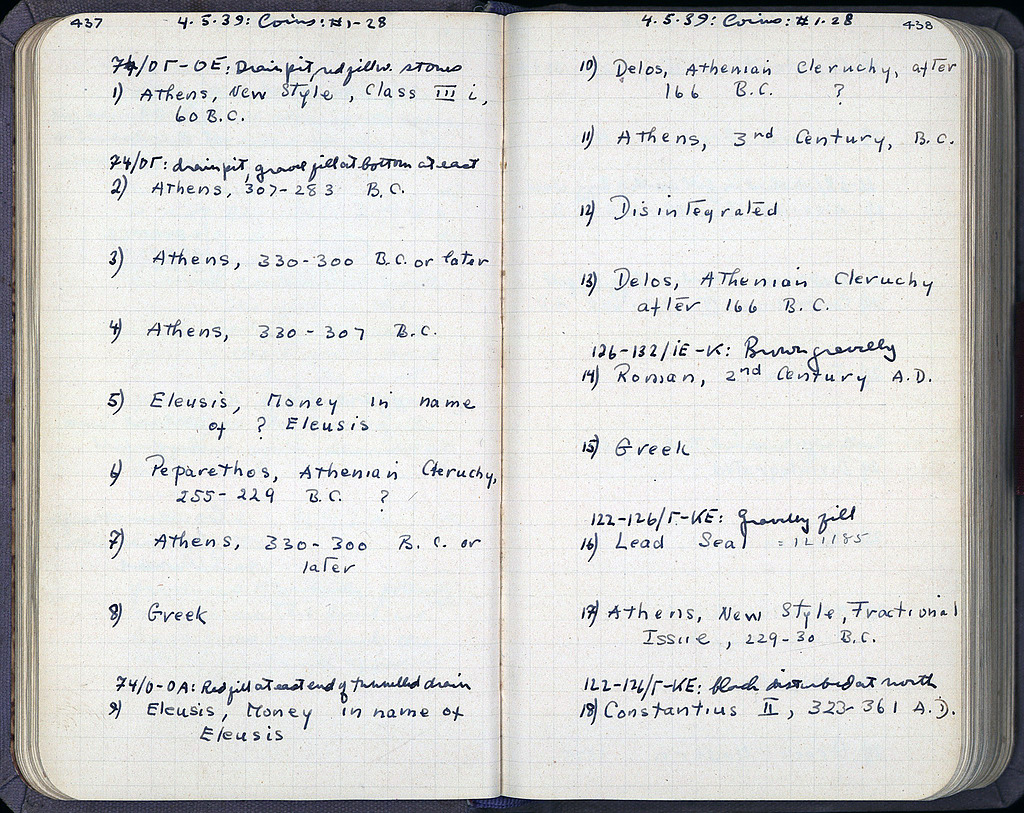 437
4.5.39: Coins: #1-28
74/ΟΓ-ΟΕ: Drain pit, red fill w. stones
1) Athens, New Style, Class III i,
60 B.C.
74/ΟΓ: drain pit, gravel fill at bottom at east
2) Athens, 307-283 B.C.
3) Athens, 330-300 B.C. or later
4) Athens, 330-307 B.C.
5) Eleusis, Money in name
of ? Eleusis
6) Peparethos, Athenian Cleruchy,
255-229 B.C. ?
7) Athens, 330-300 B.C. or
later
8) Greek
74/Ο-ΟΑ: Red fill at east end of tunnelled drain
9) Eleusis, Money in name of
Eleusis
4.5.39: Coins: #1-28
438
10) Delos, Athenian Cleruchy, after
166 B.C. ?
11) Athens, 3rd Century, B.C.
12) Disintegrated
13) Delos, Athenian Cleruchy
after 166 B.C.
126-132/ΙΕ-Κ: Brown gravelly
14) Roman, 2nd Century A.D.
15) Greek
122-126/Γ-ΚΕ: Gravelly fill
16) Lead Seal = IL 1185
17) Athens, New Style, Fractional
Issue, 229-30 B.C.
122-126/Γ-ΚΕ: black disturbed at north
18) Constantius II, 323-361 A.D.